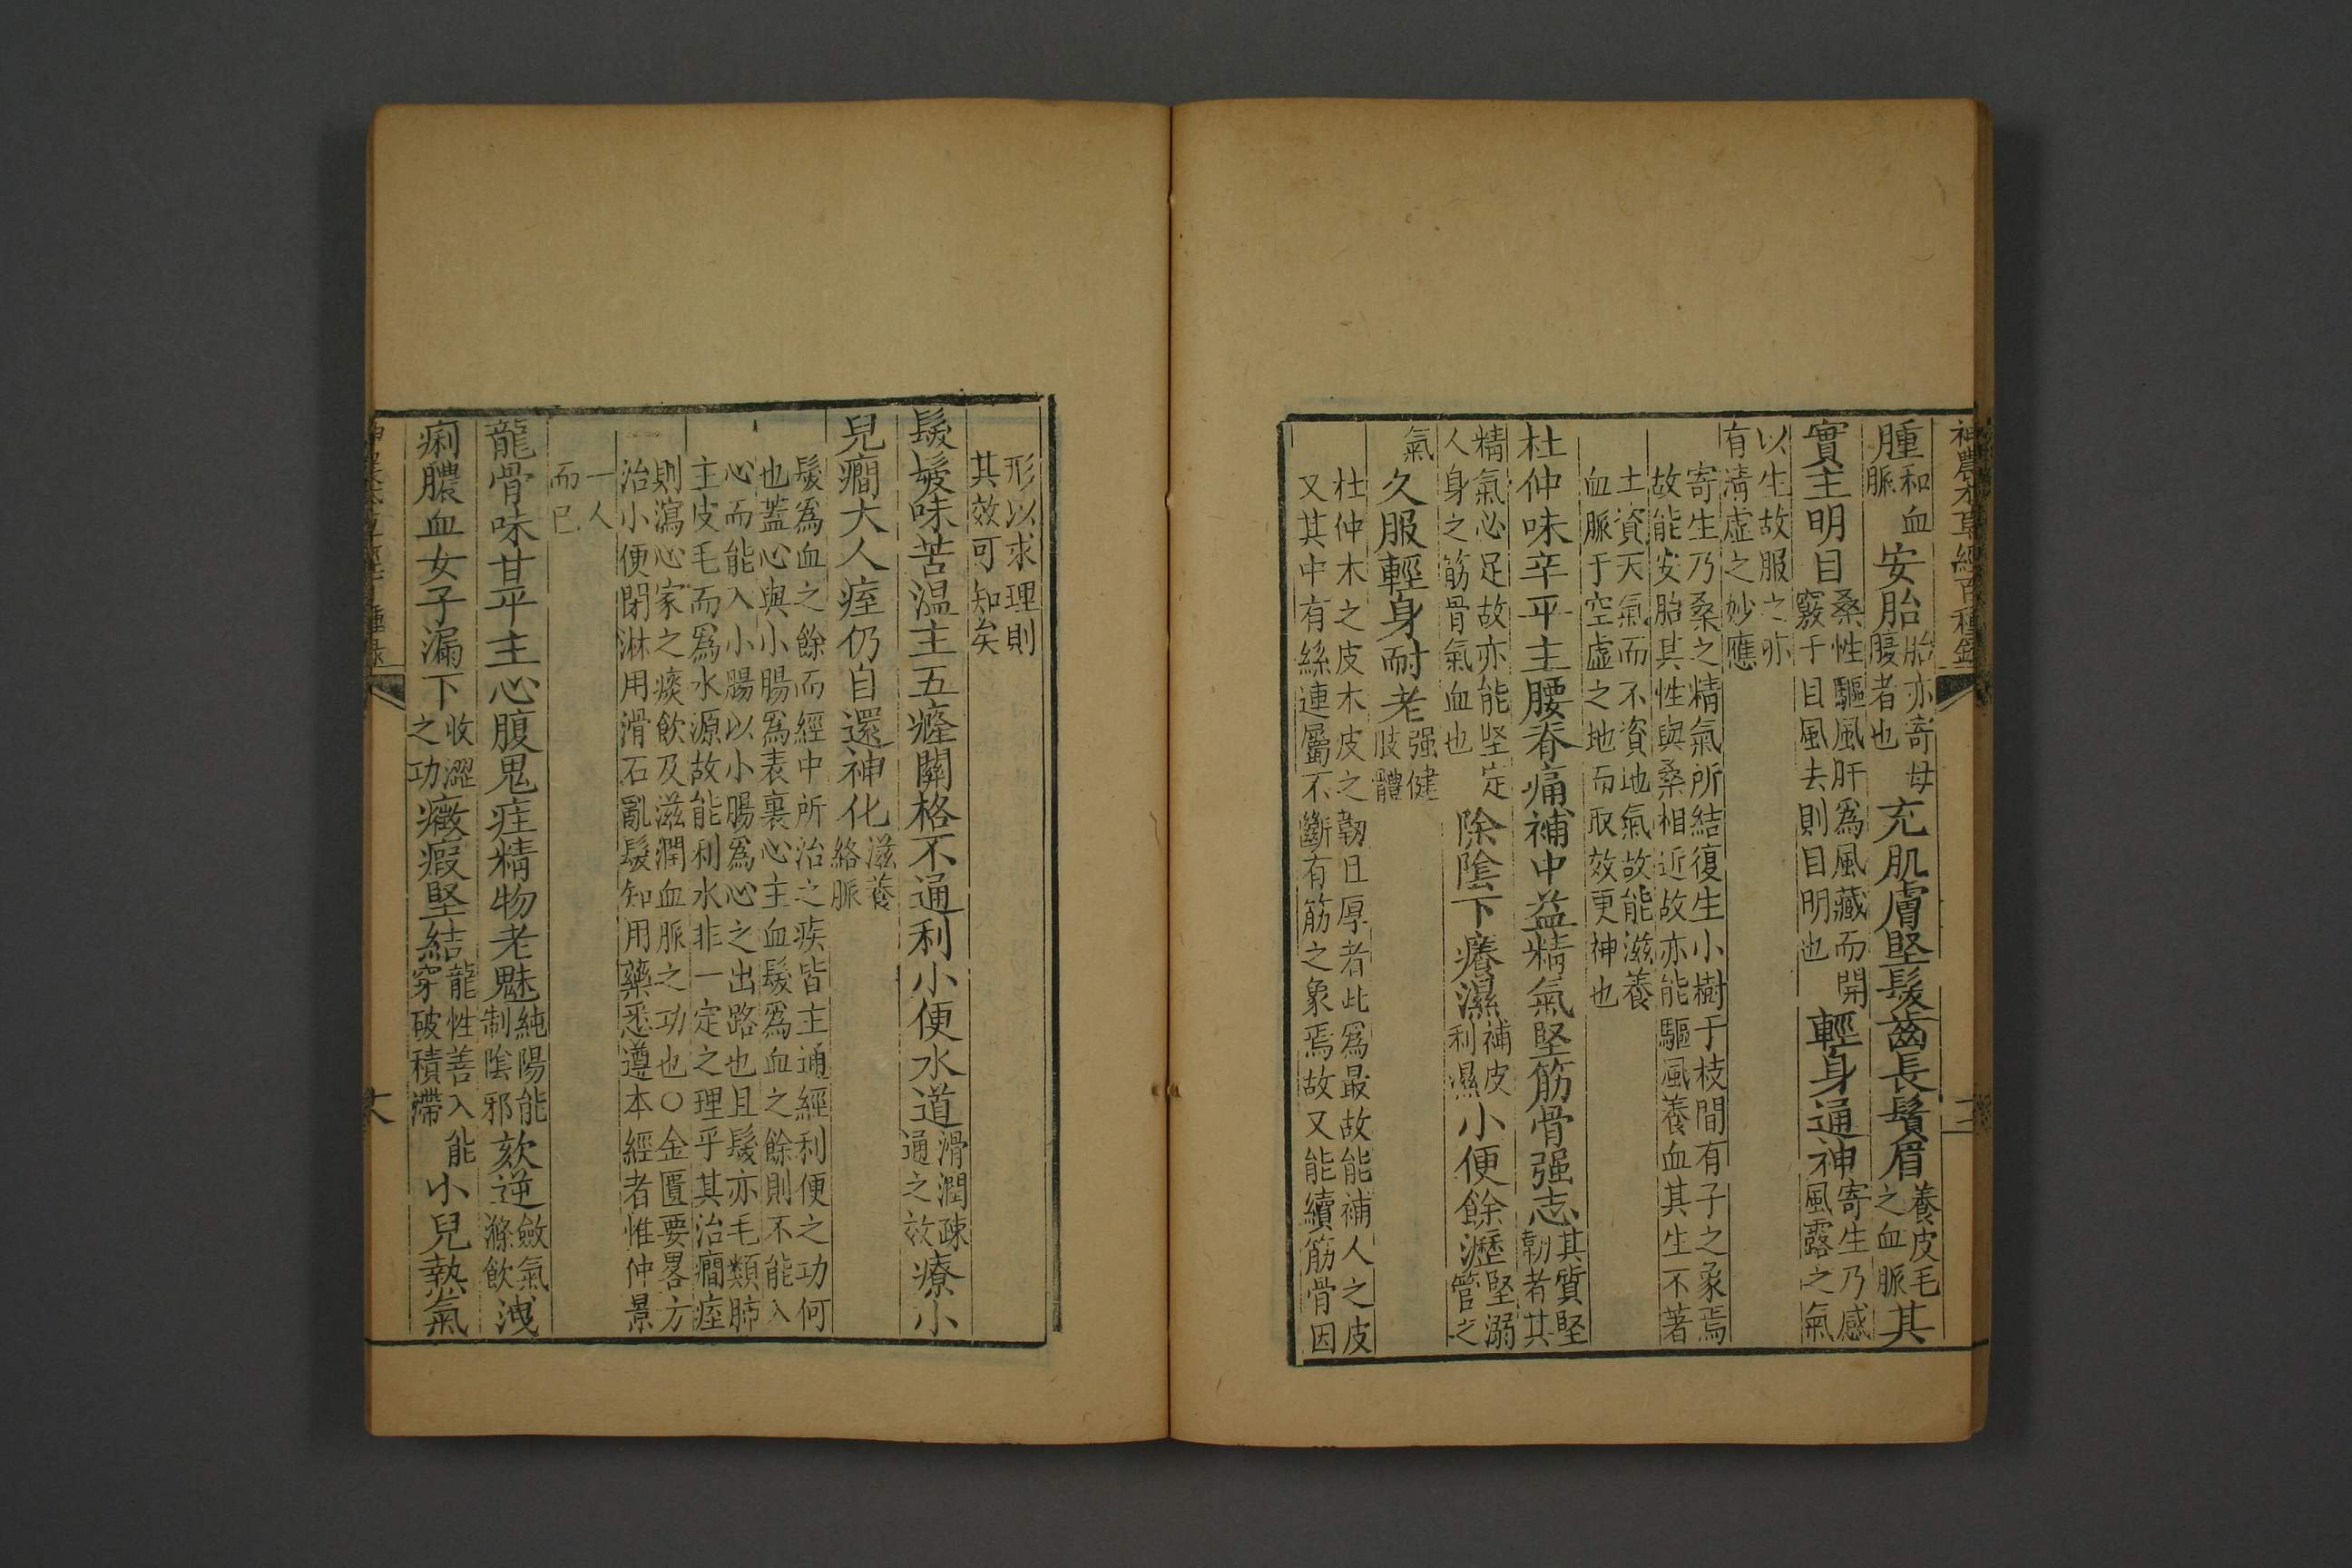 神農本草經百種錄
腫和血脈安胎胎亦寄母腹者也充肌膚堅髮齒長鬚眉養皮毛之血脈其
實主明目桑性驅風肝爲風藏而開竅于目風去則目明也輕身通神寄生乃感風露之氣
以生故服之亦
有淸虛之妙應
寄生乃桑之精氣所結復生小樹于枝間有子之象焉
故能安胎其性與桑相近故亦能驅風養血其生不著
土資天氣而不資地氣故能滋養
血脈于空虛之地而取效更神也
杜仲味辛平主腰脊痛補中益精氣堅筋骨强志其質堅韌者其
精氣必足故亦能坚定人身之筋骨氣血也除陰下癢濕補皮利濕小便餘瀝堅溺管之
氣久服輕身耐老强健肢體
杜仲木之皮木皮之韌且厚者此爲最故能補人之皮
又其中有絲連屬不斷有筋之象焉故又能續筋骨因
形以求理則
其效可知矣
髮髲味苦温主五癃關格不通利小便水道滑潤疎通之效療小
兒癇大人痓仍自還神化滋養絡脈
髮爲血之餘而經中所治之疾皆主通經利便之功何
也蓋心與小腸爲表裏心主血髮爲血之餘則不能入
心而能入小腸以小腸爲心之出路也且髮亦毛類肺
主皮毛而爲水源故能利水非一定之理乎其治癇痓
則瀉心家之痰飲及滋潤血脈之功也○金匱要畧方
治小便閉淋用滑石亂髮知用藥悉遵本經者惟仲景
一人
而已
龍骨味甘平主心腹鬼疰精物老魅純陽能制陰邪欬逆斂氣滌飲洩
痢膿血女子漏下收澀之功癥瘕堅結龍性善入能穿破積滯小兒熱氣